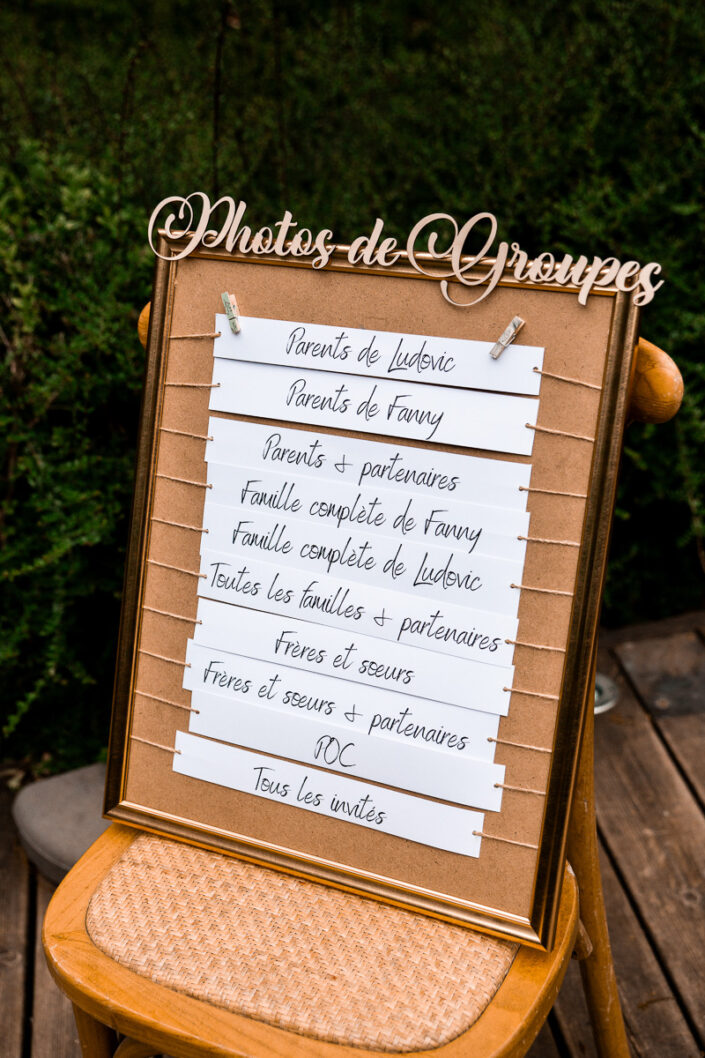 Photos de Groupes
Parents de Ludovic
Parents de Fanny
Parents & partenaires
Famille complète de Fanny
Famille complète de Ludovic
Toutes les familles & partenaires
Frères et sœurs
Frères et sœurs & partenaires
POC
Tous les invités